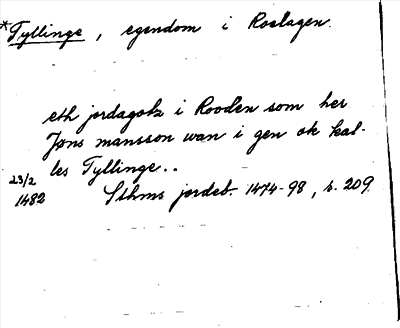 *Tyllinge, egendom i Roslagen.
eth jordagotz i Rooden som her
Jøns mansson wan i gen ok kal-
les Tyllinge..
23/2
1482
Sthms jordeb. 1474-98, s. 209.